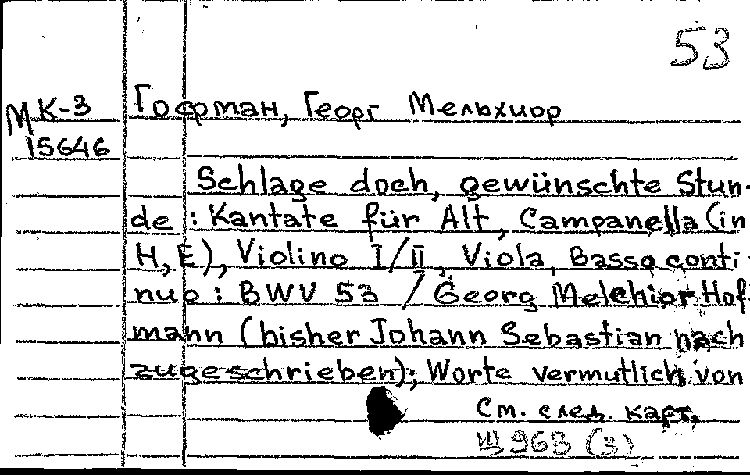 53
МК-3
15646
Гофман, Георг Мельхиор
Schlage doch, gewünschte Stun-
de : Kantate für Alt, Campanella (in
H, E), Violino I/II, Viola, Basso conti-
nuo : BWV 53 / Georg Melchior Hof-
mann (bisher Johann Sebastian
zugeschrieben); Worte vermutlich von
См. след. карт.
Щ963 (3)